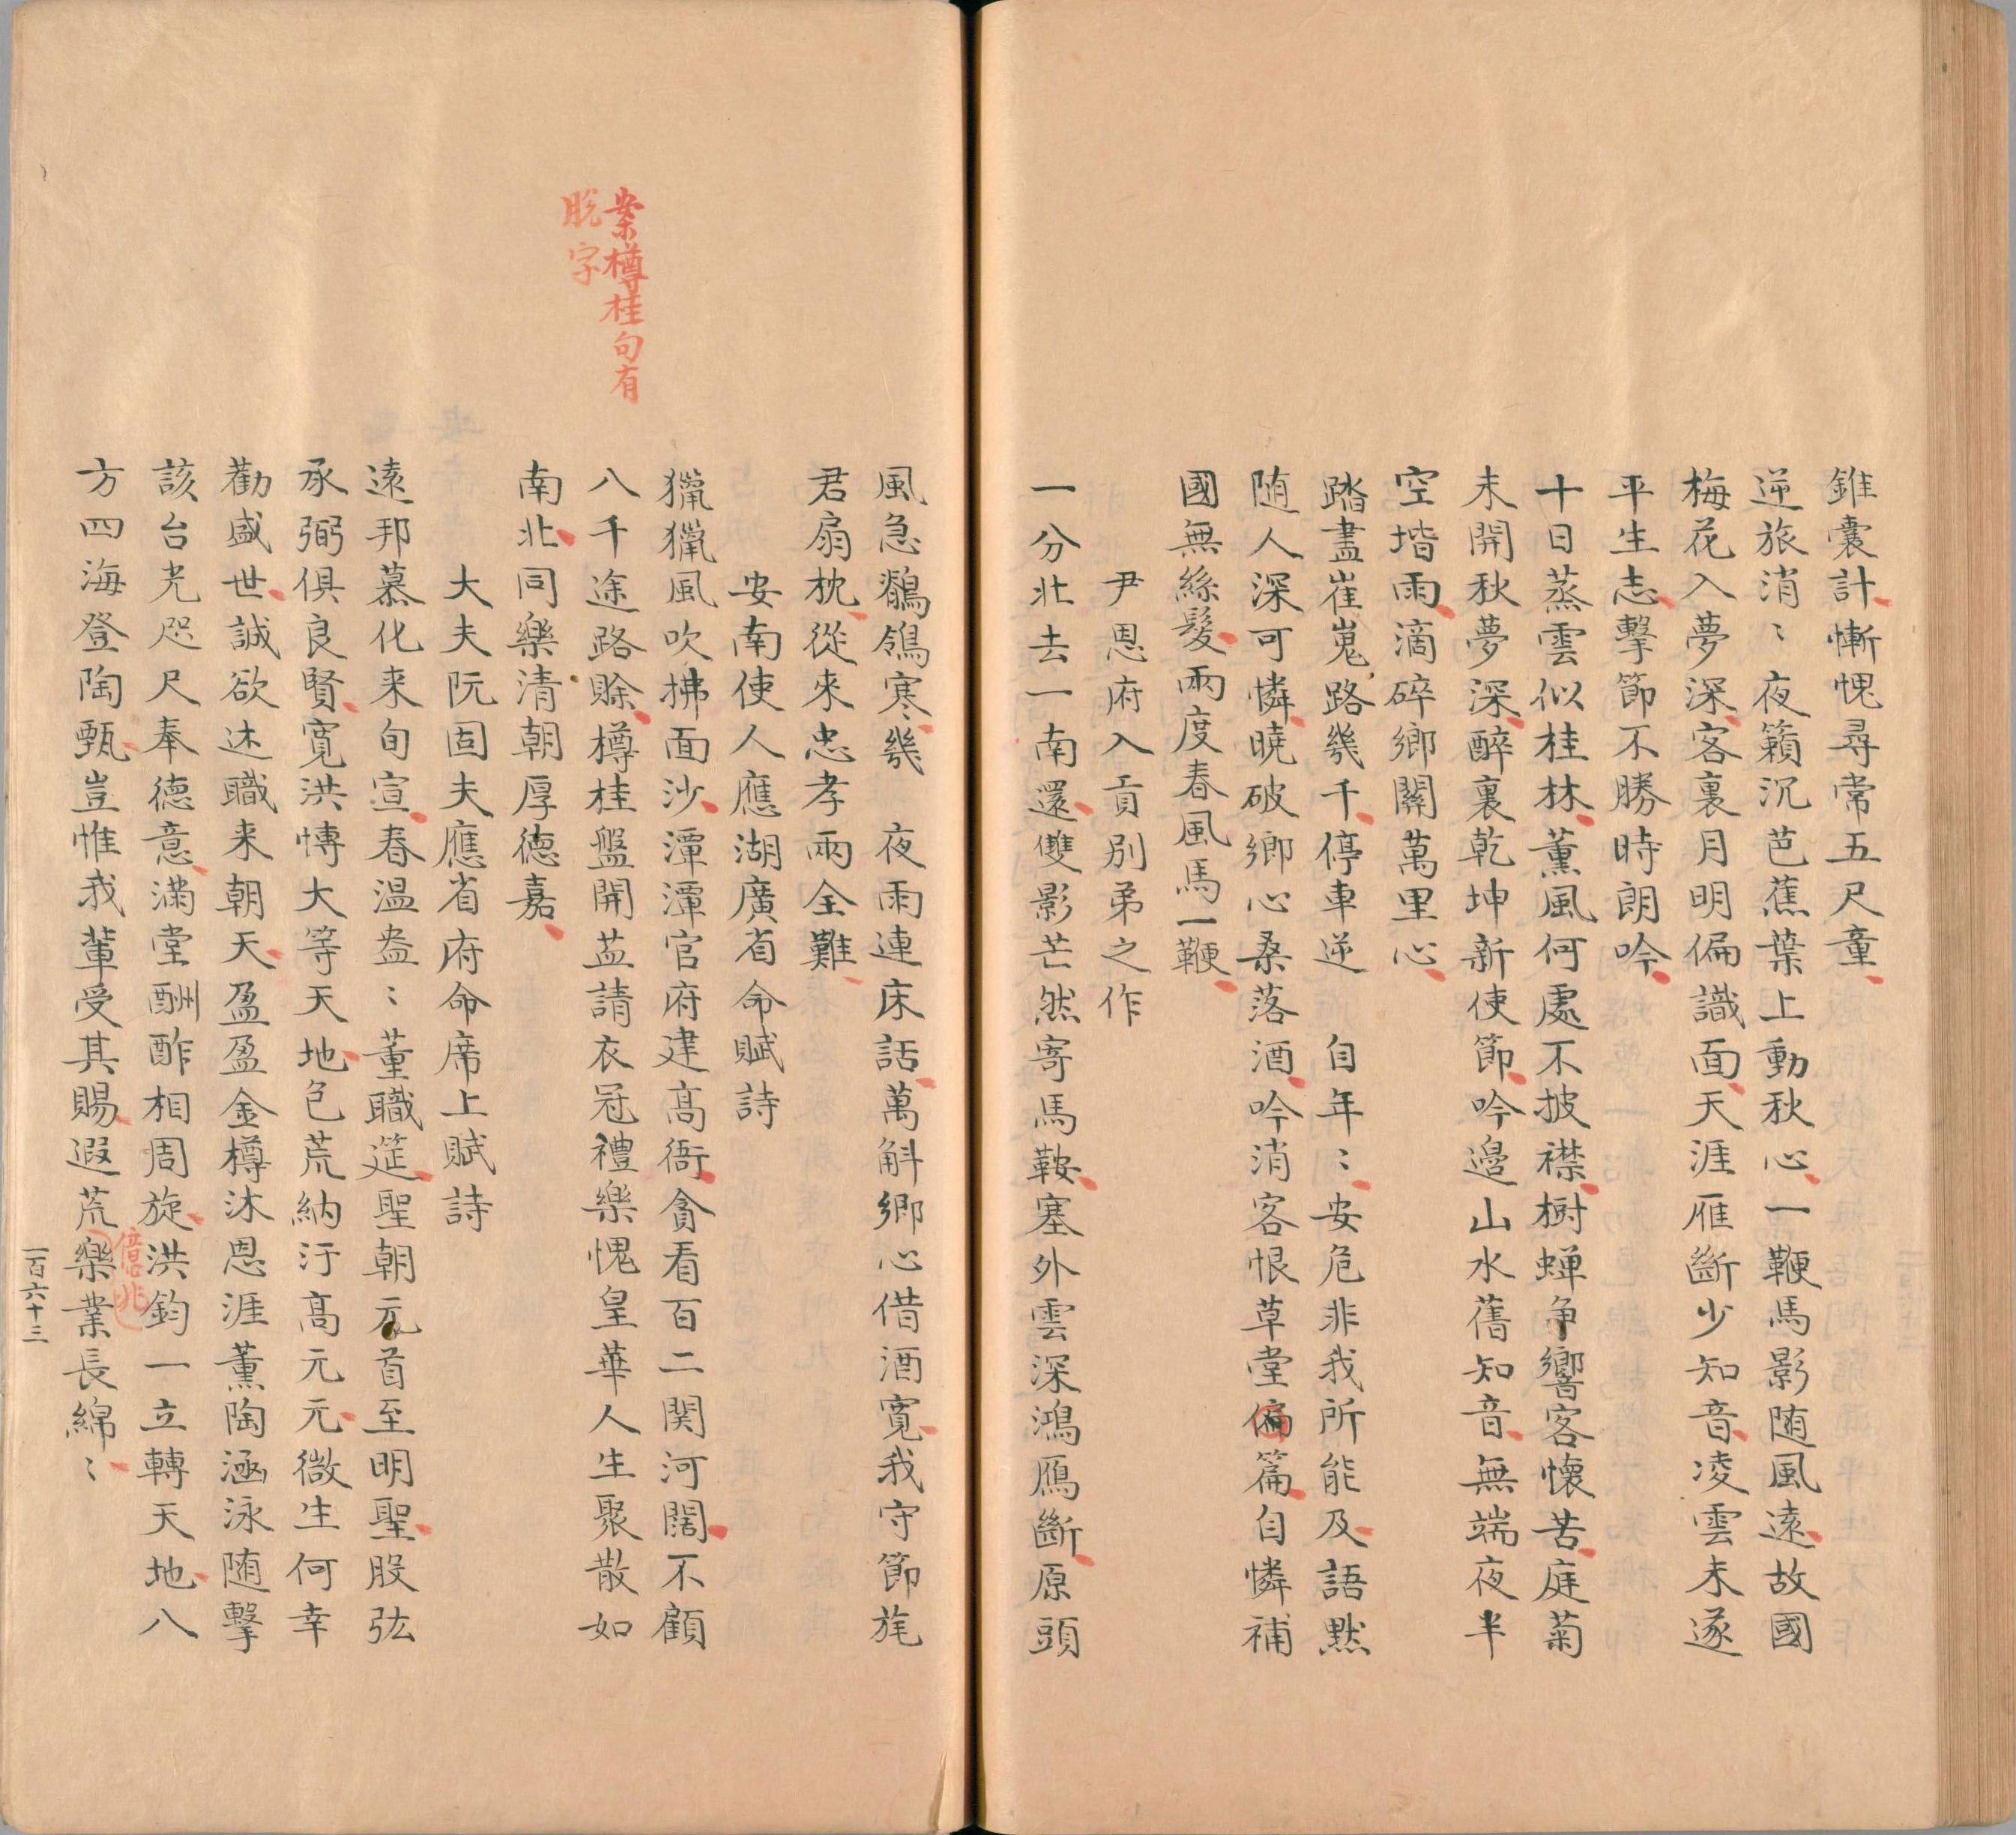 錐囊計慚愧尋常五尺童
逆旅消〻夜籟沉芭蕉葉上動秋心一鞭馬影随風遠故國
梅花入夢深客裏月明偏識面天涯雁斷少知音凌雲未遂
平生志擊節不勝時朗吟
十日蒸雲似桂林薰風何處不披襟樹蝉争響客懷苦庭菊
未開秋夢深醉裏乾坤新使節吟邊山水舊知音無端夜半
空堦雨滴碎鄉關萬里心
踏盡崔嵬路幾千停車逆　自年〻安危非我所能及語默
随人深可憐曉破鄉心桑落酒吟消客恨草堂偏篇自憐補
國無絲髮兩度春風馬一鞭
尹恩府入貢別弟之作
一分北去一南還雙影芒然寄馬鞍塞外雲深鴻鴈斷原頭
風急鶺鴒寒幾　夜雨連床話萬斛鄉心借酒寬我守節旄
君扇枕從來忠孝兩全難
安南使人應湖廣省命賦詩
獵獵風吹拂面沙潭潭官府建高衙貪看百二関河闊不顧
八千途路賖樽桂盤開葢請衣冠禮樂愧皇華人生聚散如
南北同樂清朝厚德嘉
大夫阮固夫應省府命席上賦詩
遠邦慕化来旬宣春温盎〻董職筵聖朝元首至明聖股肱
承弼俱良賢寛洪博大等天地包荒納汙高元元微生何幸
勸盛世誠欲述職来朝天盈盈金樽沐恩涯薰陶涵泳随擊
該台光咫尺奉德意滿堂酬酢相周旋洪鈞一立轉天地八
方四海登陶甄豈惟我輩受其賜遐荒樂業長綿〻
億兆
一百六十三
案樽桂句有
脫字